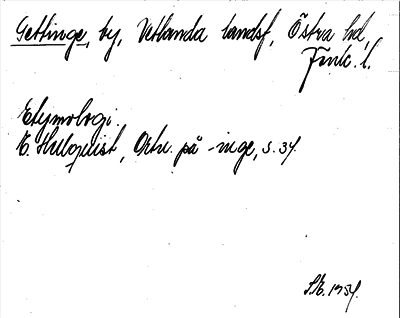 Gettinge, by, Vetlanda landsf, Östra hd,
Jönk. l.
Etymologi.
E. Hellquist, Ortn. på -inge, s. 37.